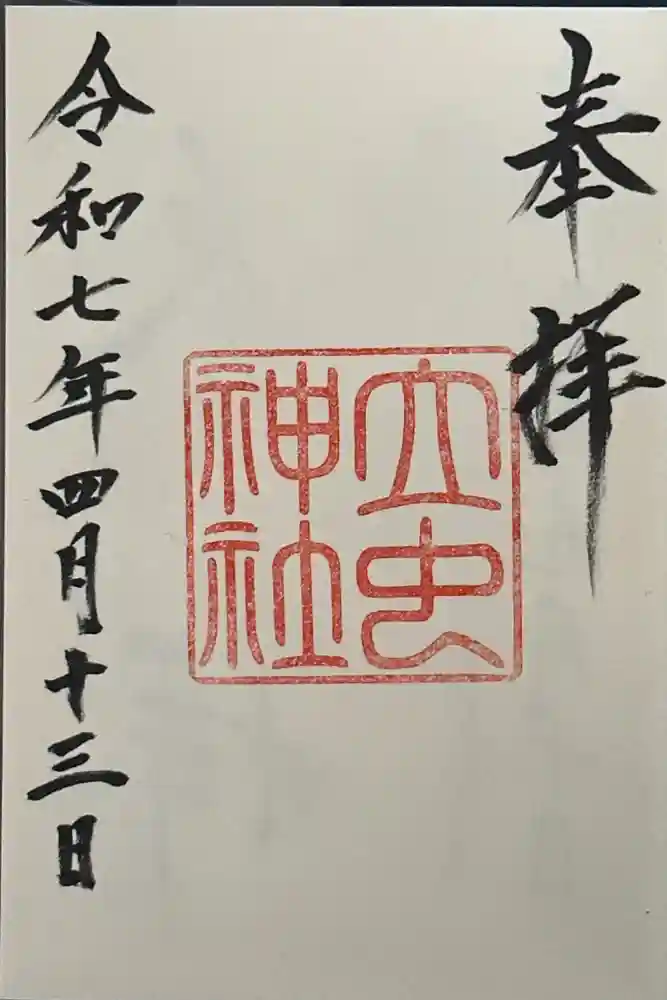 奉拝
大虫神社
令和七年四月十三日